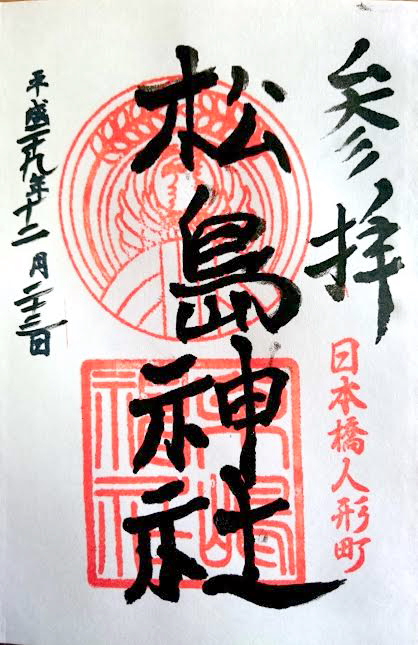 参拝
日本橋人形町
松島神社
松嶋
神社
平成二十九年十二月二十三日